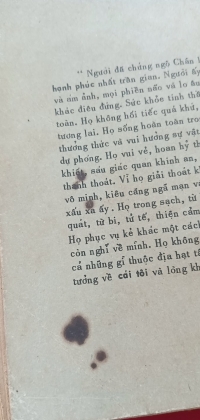 “ Người đã chứng ngộ Chân
hạnh phúc nhất trần gian. Người ấy
và ám ảnh, mọi phiền não và lo âu
khác điêu đứng. Sức khỏe tinh thầ
toàn. Họ không hối tiếc quá khứ,
tương lai. Họ sống hoàn toàn tron
thưởng thức và vui hưởng sự vật
dự phóng. Họ vui vẻ, hoan hỷ th
khiết, sáu giác quan khinh an,
thanh thoát. Vì họ giải thoát k
vô minh, kiêu căng ngã mạn v
xấu xa ấy. Họ trong sạch, từ
quát, từ bi, tử tế, thiện cảm
Họ phục vụ kẻ khác một cách
còn nghĩ về mình. Họ không
cả những gì thuộc địa hạt tâ
tưởng về cái tôi và lòng kh